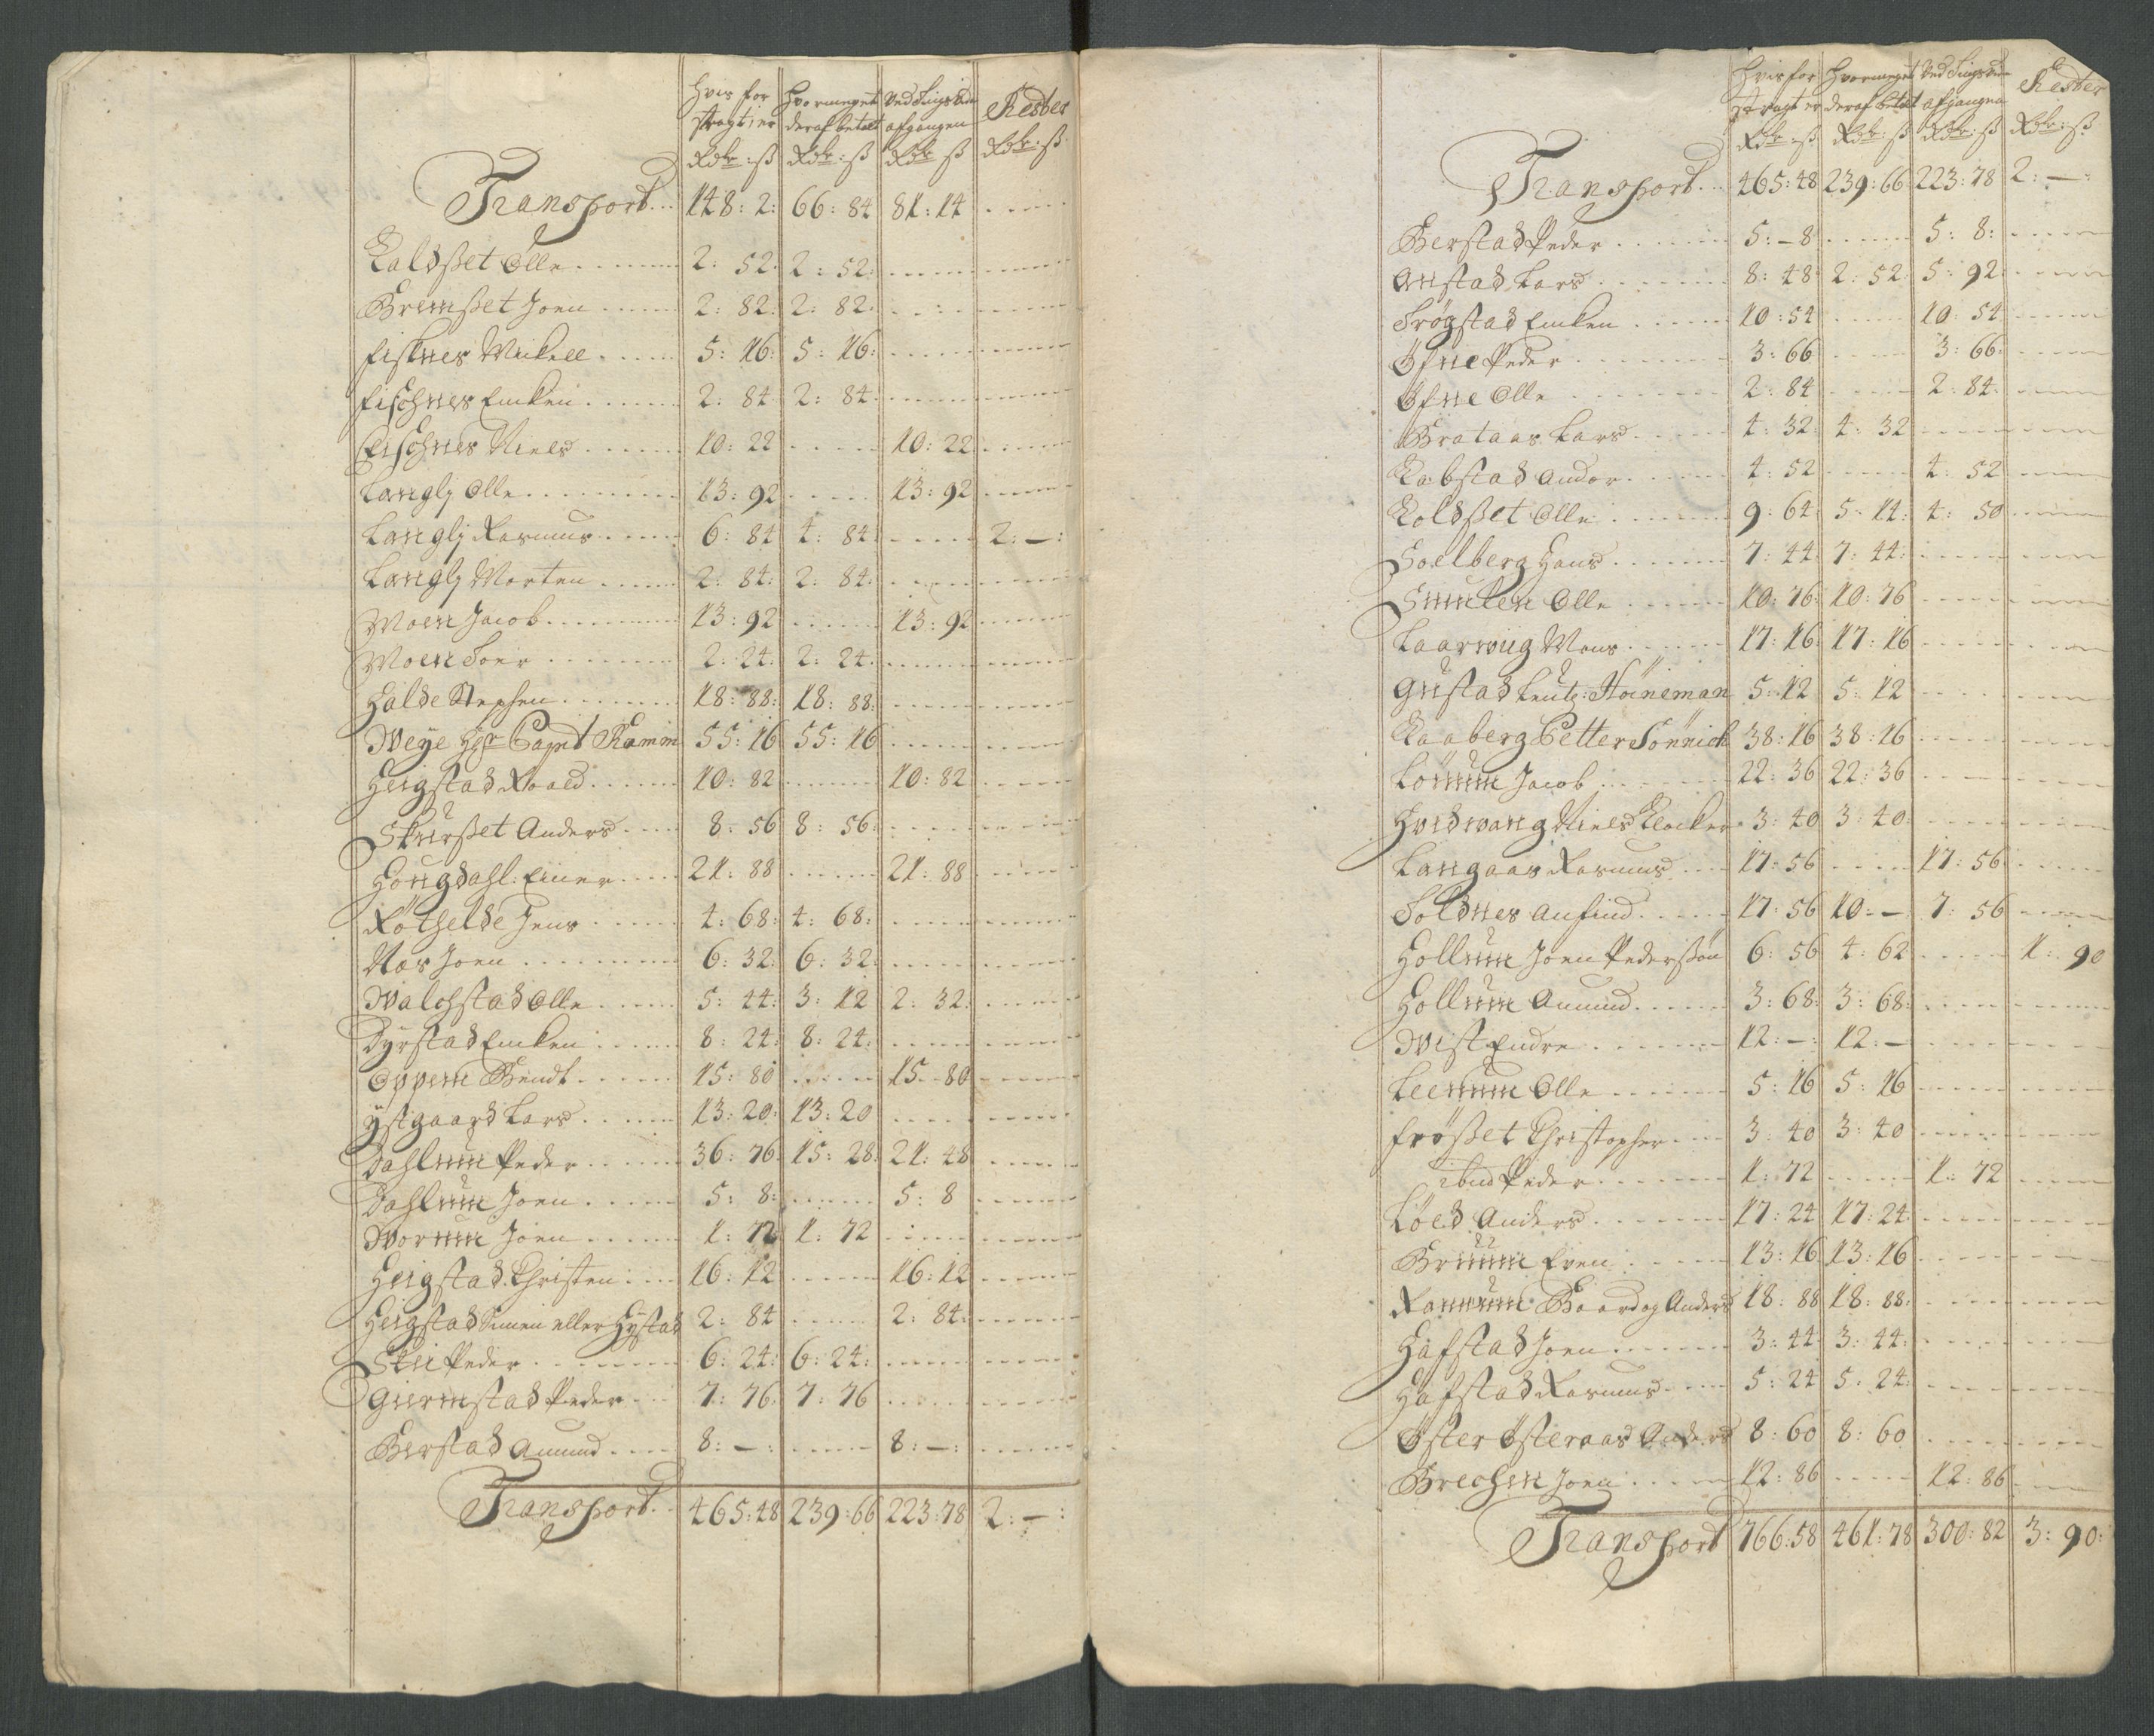 Hvis for Hvormeget Ved Tingsted
stragt: er deraf betalt afgangen Rester
Rdr: ß Rdr: ß Rdr ß Rdr: ß
Transport... 148: 2: 66: 84 81: 14
Kaldßet Olle 2: 52: 2: 52:
Bremßet Joen 2: 82: 2: 82:
Fisknes Mickell 5: 16: 5: 16:
Fischnes Encken 2: 84 2: 84:
Fischnes Niels 10: 22 10: 22
Langlj Olle 13: 92 13: 92
Langlj Rasmus 6: 84 4: 84: 2: –:
Langlj Morten 2: 84: 2: 84:
Moen Jacob 13: 92 13: 92
Moen Toer 2: 24: 2: 24:
Halde Stephen 18: 88: 18: 88:
Weye Hr Capnt Ramm 55: 16 55: 16
Heigstad Roald 10: 82 10: 82
Skurßet Anders 8: 56 8: 56:
Hougdahl: Einer 21: 88 21: 88
Røthelde Jens 4: 68: 4: 68:
Nos Joen 6: 32: 6: 32:
Walchstad Olle 5: 44: 3: 12 2: 32:
Dyrstad Encken 8: 24: 8: 24:
Oppem Bendt 15: 80 15: 80
ystgaard Lars 13: 20: 13: 20
Dahlum Peder 36: 76: 15: 28: 21: 48
Dahlum Joen 5: 8: 5: 8
Worum Joen 1: 72 1: 72
Heigstad Christen 16: 12 16: 12
Heigstad Simen eller Hystad 2: 84 2: 84:
Stii Peder 6: 24: 6: 24:
Giermstad Peder 7: 76: 7: 76
Berstad Amund 8: –: 8: –:
Transport 465: 48 239: 66 223: 78 2: –:
Hvis for Hvormeget Ved Tingsted
stragt er deraf betalt afgangen Rester
Rdr: ß Rdr: ß Rdr: ß Rdr: ß
Transport... 465: 48 239: 66 223: 78 2: –:
Berstad Peder 5: – 8 5: 8:
Onstad Lars 8: 48 2: 52: 5: 92:
Trøgstad Encken 10: 54 10: 54
Øfne Peder 3: 66 3: 66:
Øfne Olle 2: 84 2: 84:
Brataas Lars 4: 32: 4: 32
Kabstad Andor 4: 52 4: 52
Koldßet Olle 9: 64: 5: 14: 4: 50
Soelberg Hans 7: 44: 7: 44:
Snuken Olle 10: 76: 10: 76
Laarwiig Mons 17: 16: 17: 16
Gustad Leut: Høineman 5: 12 5: 12
Raaberg Petter Sønnich 38: 16 38: 16
Lønum Jacob 22: 36 22: 36
Hvidwang Niels Klocker 3: 40 3: 40
Langaas Rasmus 17: 56 17: 56
Soldnes Anfind 17: 56 10: – 7: 56
Hollum Joen Pedersøn 6: 56 4: 62 1: 90
Hollum Amund 3: 68: 3: 68:
Wist Endre 12: –: 12: –
Leenum Olle 5: 16 5: 16
Frøßet Christopher 3: 40 3: 40
ibnd Peder 1: 72 1: 72
Løed Anders 17: 24 17: 24:
Bruum Even 13: 16 13: 16
Rommum Baard og Anders 18: 88 18: 88:
Hafstad Joen 3: 44: 3: 44:
Hafstad Rasmus 5: 24 5: 24:
Øster Østeraas Anders 8: 60 8: 60
Brechen Joen 12: 86 12: 86
Transport 766: 58 461: 78 300: 82 3: 90: